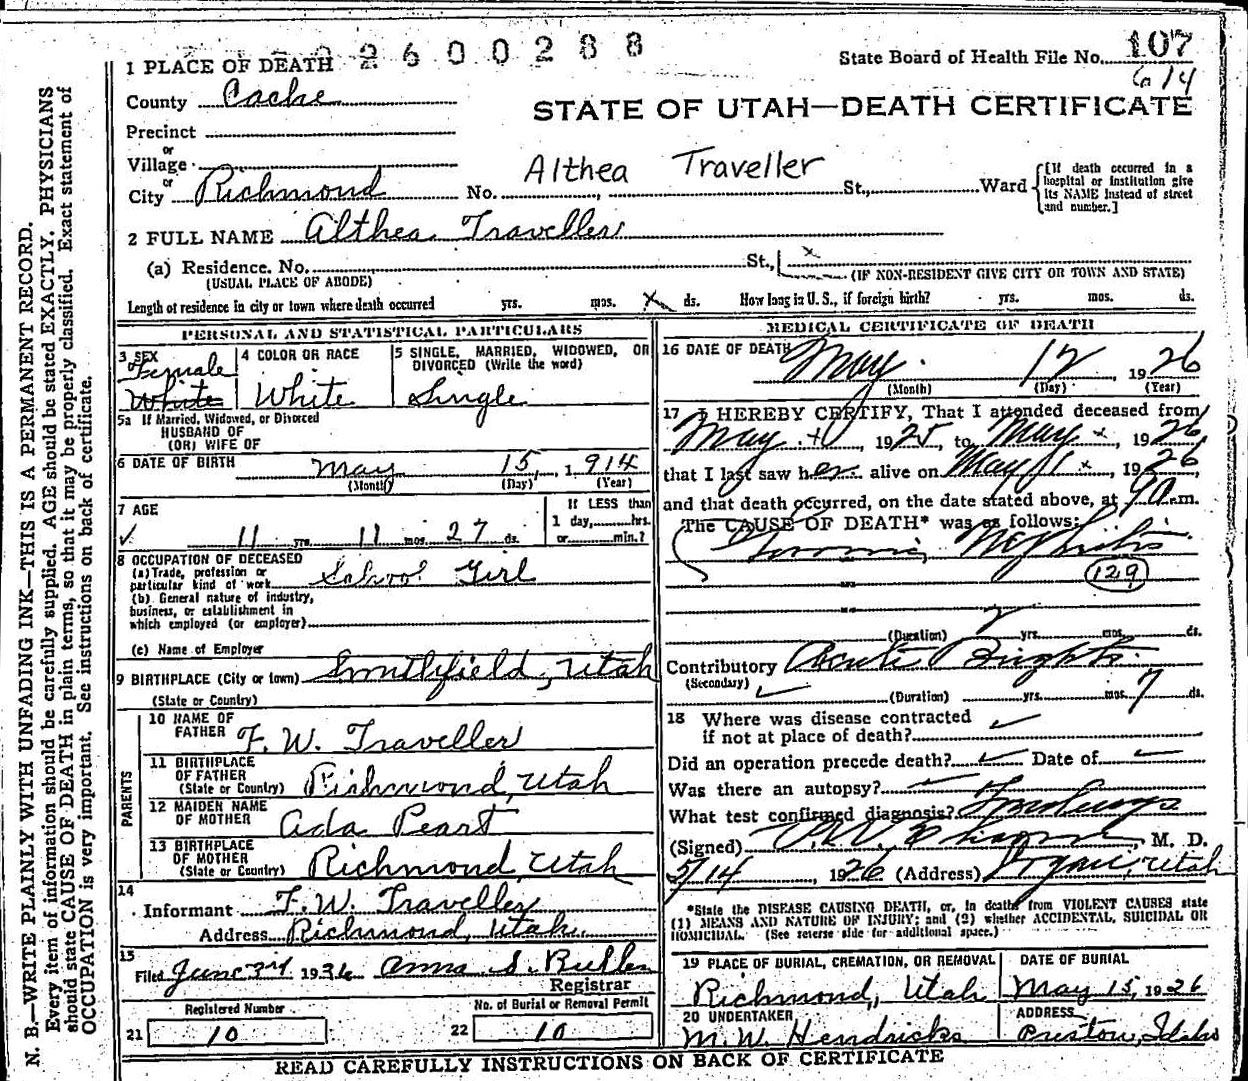 2600288
State Board of Health File No. 107
614
1 PLACE OF DEATH
County Cache
STATE OF UTAH—DEATH CERTIFICATE
Precinct
or
Village
or
City Richmond No. St., Ward
Althea Traveller
[If death occurred in a hospital or institution give its NAME instead of street and number.]
2 FULL NAME Althea Traveller
(a) Residence. No. St.,
(USUAL PLACE OF ABODE) (IF NON-RESIDENT GIVE CITY OR TOWN AND STATE)
Length of residence in city or town where death occurred yrs. mos. ds. How long in U. S., if foreign birth? yrs. mos. ds.
PERSONAL AND STATISTICAL PARTICULARS
3 SEX
Female
White
4 COLOR OR RACE
White
5 SINGLE, MARRIED, WIDOWED, OR
DIVORCED (Write the word)
Single
5a If Married, Widowed, or Divorced
HUSBAND OF
(OR) WIFE OF
6 DATE OF BIRTH May 15, 1914
(Month) (Day) (Year)
7 AGE
11 yrs. 11 mos. 27 ds.
If LESS than
1 day, hrs.
or min.?
8 OCCUPATION OF DECEASED
(a) Trade, profession or
particular kind of work School Girl
(b) General nature of industry,
business, or establishment in
which employed (or employer)
(c) Name of Employer
9 BIRTHPLACE (City or town) Smithfield, Utah
(State or Country)
PARENTS
10 NAME OF
FATHER F. W. Traveller
11 BIRTHPLACE
OF FATHER
(State or Country) Richmond, Utah
12 MAIDEN NAME
OF MOTHER Ada Peart
13 BIRTHPLACE
OF MOTHER
(State or Country) Richmond, Utah
14
Informant F. W. Traveller
Address Richmond, Utah.
15
Filed June 3rd 1926 Anna S. Bullen
Registrar
Registered Number
21 10
No. of Burial or Removal Permit
22 10
MEDICAL CERTIFICATE OF DEATH
16 DATE OF DEATH
May 12 1926
(Month) (Day) (Year)
17 I HEREBY CERTIFY, That I attended deceased from
May 1925, to May 1926
that I last saw her alive on May 11, 1926
and that death occurred, on the date stated above, at 9 a.m.
The CAUSE OF DEATH* was as follows:
Chronic Nephritis
129
(Duration) 2 yrs. mos. ds.
Contributory Acute Brights
(Secondary)
(Duration) yrs. mos. 7 ds.
18 Where was disease contracted
if not at place of death?
Did an operation precede death? Date of
Was there an autopsy?
What test confirmed diagnosis? Findings
(Signed) M. D.
5/14, 1926 (Address) Logan, Utah
*State the DISEASE CAUSING DEATH, or, in deaths from VIOLENT CAUSES state
(1) MEANS AND NATURE OF INJURY; and (2) whether ACCIDENTAL, SUICIDAL OR
HOMICIDAL. (See reverse side for additional space.)
19 PLACE OF BURIAL, CREMATION, OR REMOVAL
Richmond, Utah
DATE OF BURIAL
May 15, 1926
20 UNDERTAKER
M. W. Hendricks
ADDRESS
Preston, Idaho
READ CAREFULLY INSTRUCTIONS ON BACK OF CERTIFICATE
N. B.—WRITE PLAINLY WITH UNFADING INK—THIS IS A PERMANENT RECORD.
Every item of information should be carefully supplied. AGE should be stated EXACTLY. PHYSICIANS
should state CAUSE OF DEATH in plain terms, so that it may be properly classified. Exact statement of
OCCUPATION is very important. See instructions on back of certificate.